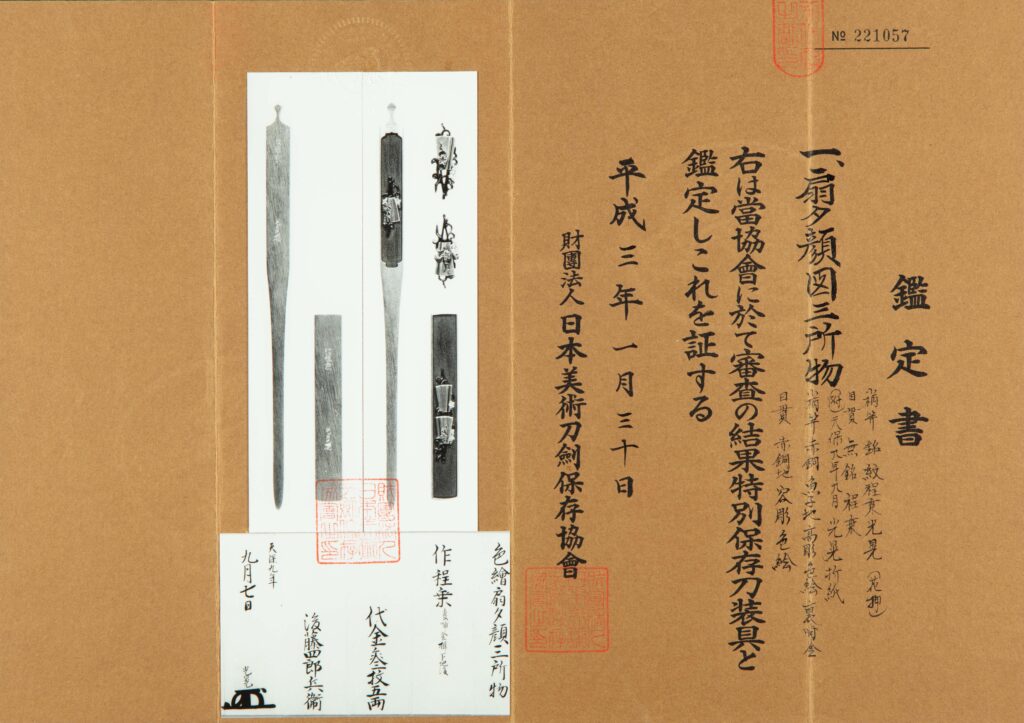 № 221057
鑑定書
一、扇夕顔図三所物
銘 紋程乗光晃(花押)
目貫 無銘 程乗
(附)天保九年九月 光晃折紙
赤銅魚子地高彫色絵
目貫 赤銅地 容彫 色絵
右は當協會に於て審査の結果特別保存刀装具と
鑑定しこれを証する
平成三年一月三十日
財團法人 日本美術刀劍保存協會
色繪扇夕顔三所物
作程乗
代金叁拾五両
後藤四郎兵衛
天保九年
九月七日
光晃